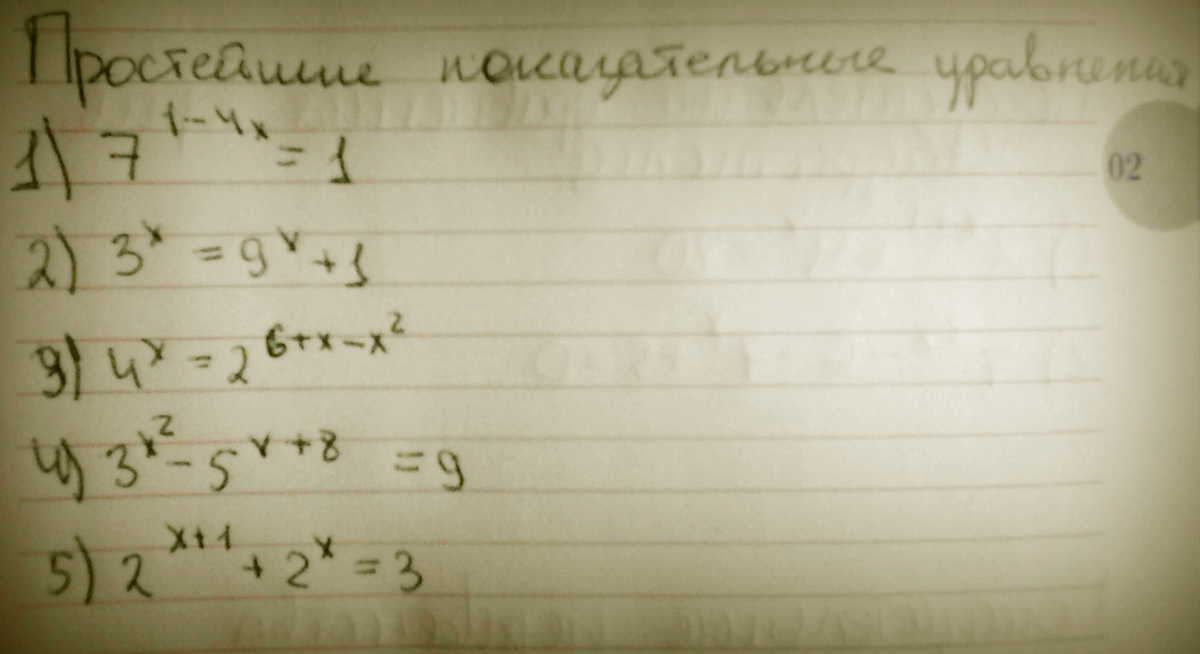 Простейшие показательные уравнения
02
1) 7^{1-4x} = 1
2) 3^x = 9^x + 1
3) 4^x = 2^{6+x-x^2}
4) 3^{x^2} - 5^{x+8} = 9
5) 2^{x+1} + 2^x = 3